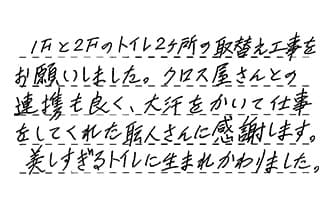 1Fと2Fのトイレ2ケ所の取替え工事を
お願いしました。クロス屋さんとの
連携も良く、大汗をかいて仕事
をしてくれた職人さんに感謝します。
美しすぎるトイレに生まれかわりました。